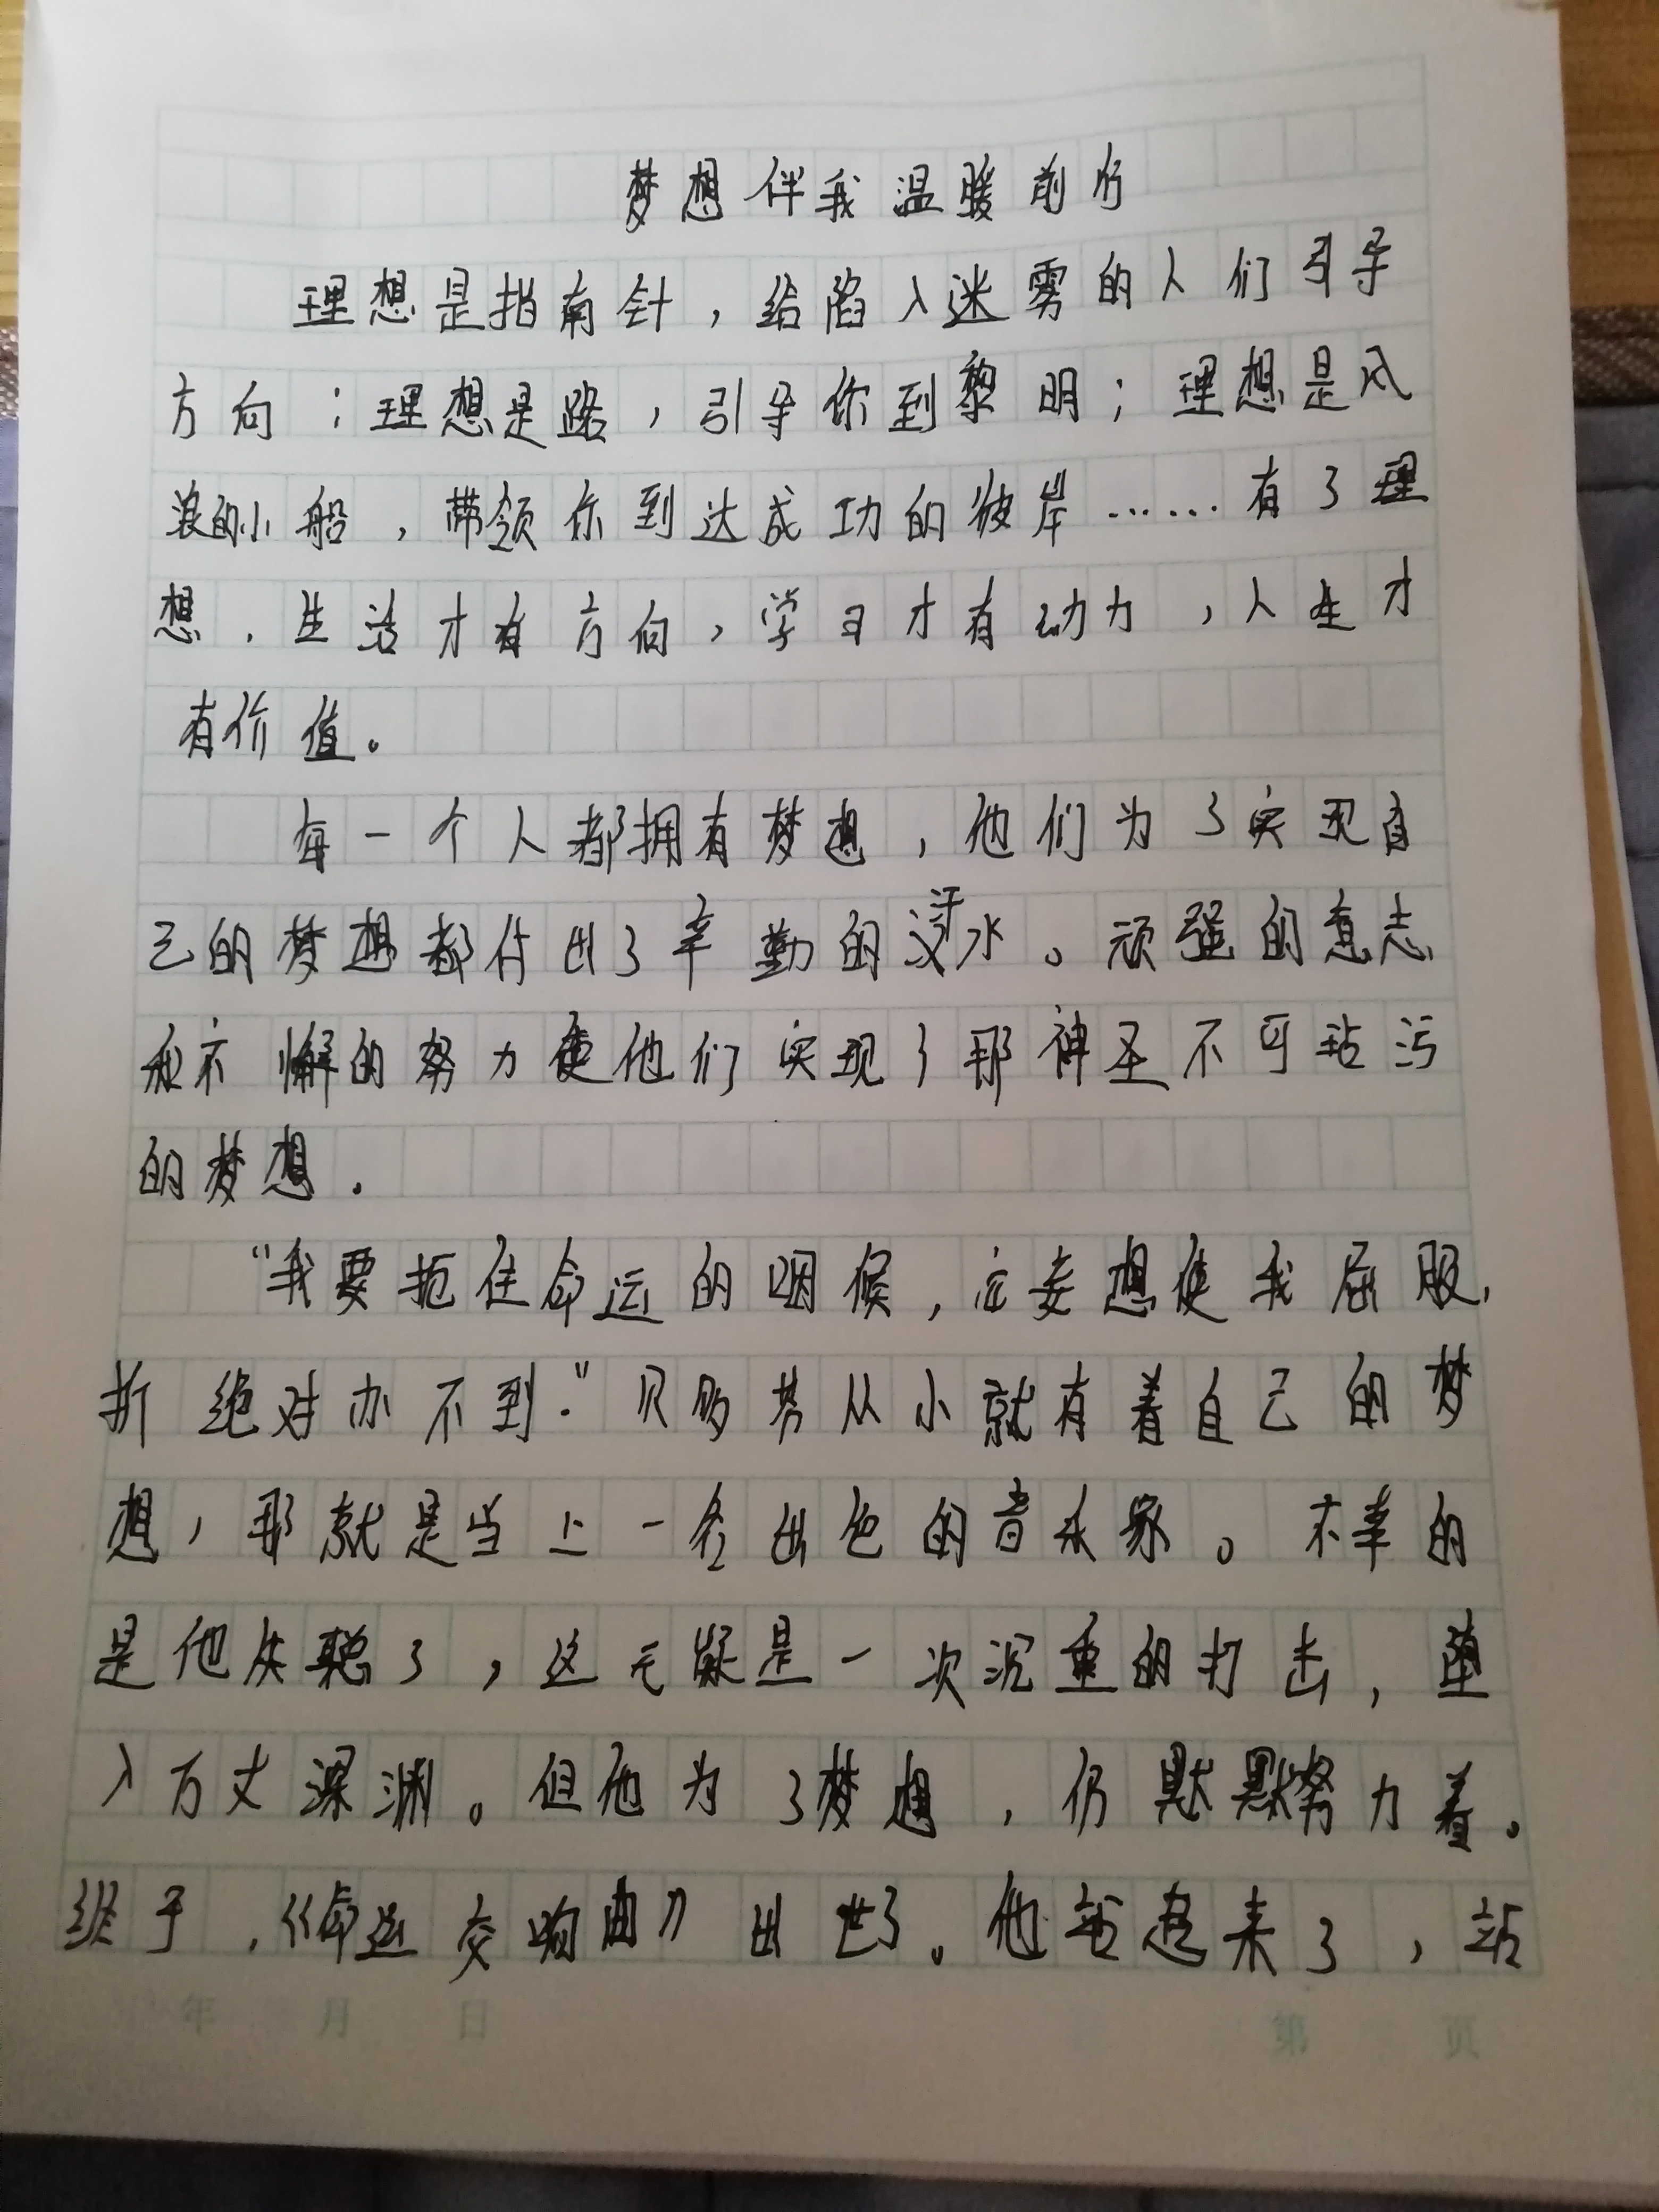 梦想伴我温暖前行
理想是指南针，给陷入迷雾的人们引导
方向；理想是路，引导你到黎明；理想是风
浪的小船，带领你到达成功的彼岸……有了理
想，生活才有方向，学习才有动力，人生才
有价值。
每一个人都拥有梦想，他们为了实现自
己的梦想都付出了辛勤的汗水。顽强的意志
和不懈的努力使他们实现了那神圣不可玷污
的梦想．
“我要扼住命运的咽候，它妄想使我屈服，
折绝对办不到．”贝多芬从小就有着自己的梦
想，那就是当上一名出色的音乐家。不幸的
是他失聪了，这无疑是一次沉重的打击，堕
入万丈深渊。但他为了梦想，仍默默努力着。
终于，《命运交响曲》出世了。他站起来了，站
年 月 日 第 页